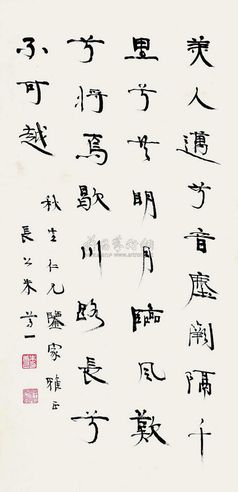 美人邁兮音塵闕隔千
里兮共明月臨風歎
兮將焉歇川路長兮
不可越
秋生仁兄鑒家雅正
長公朱芳一